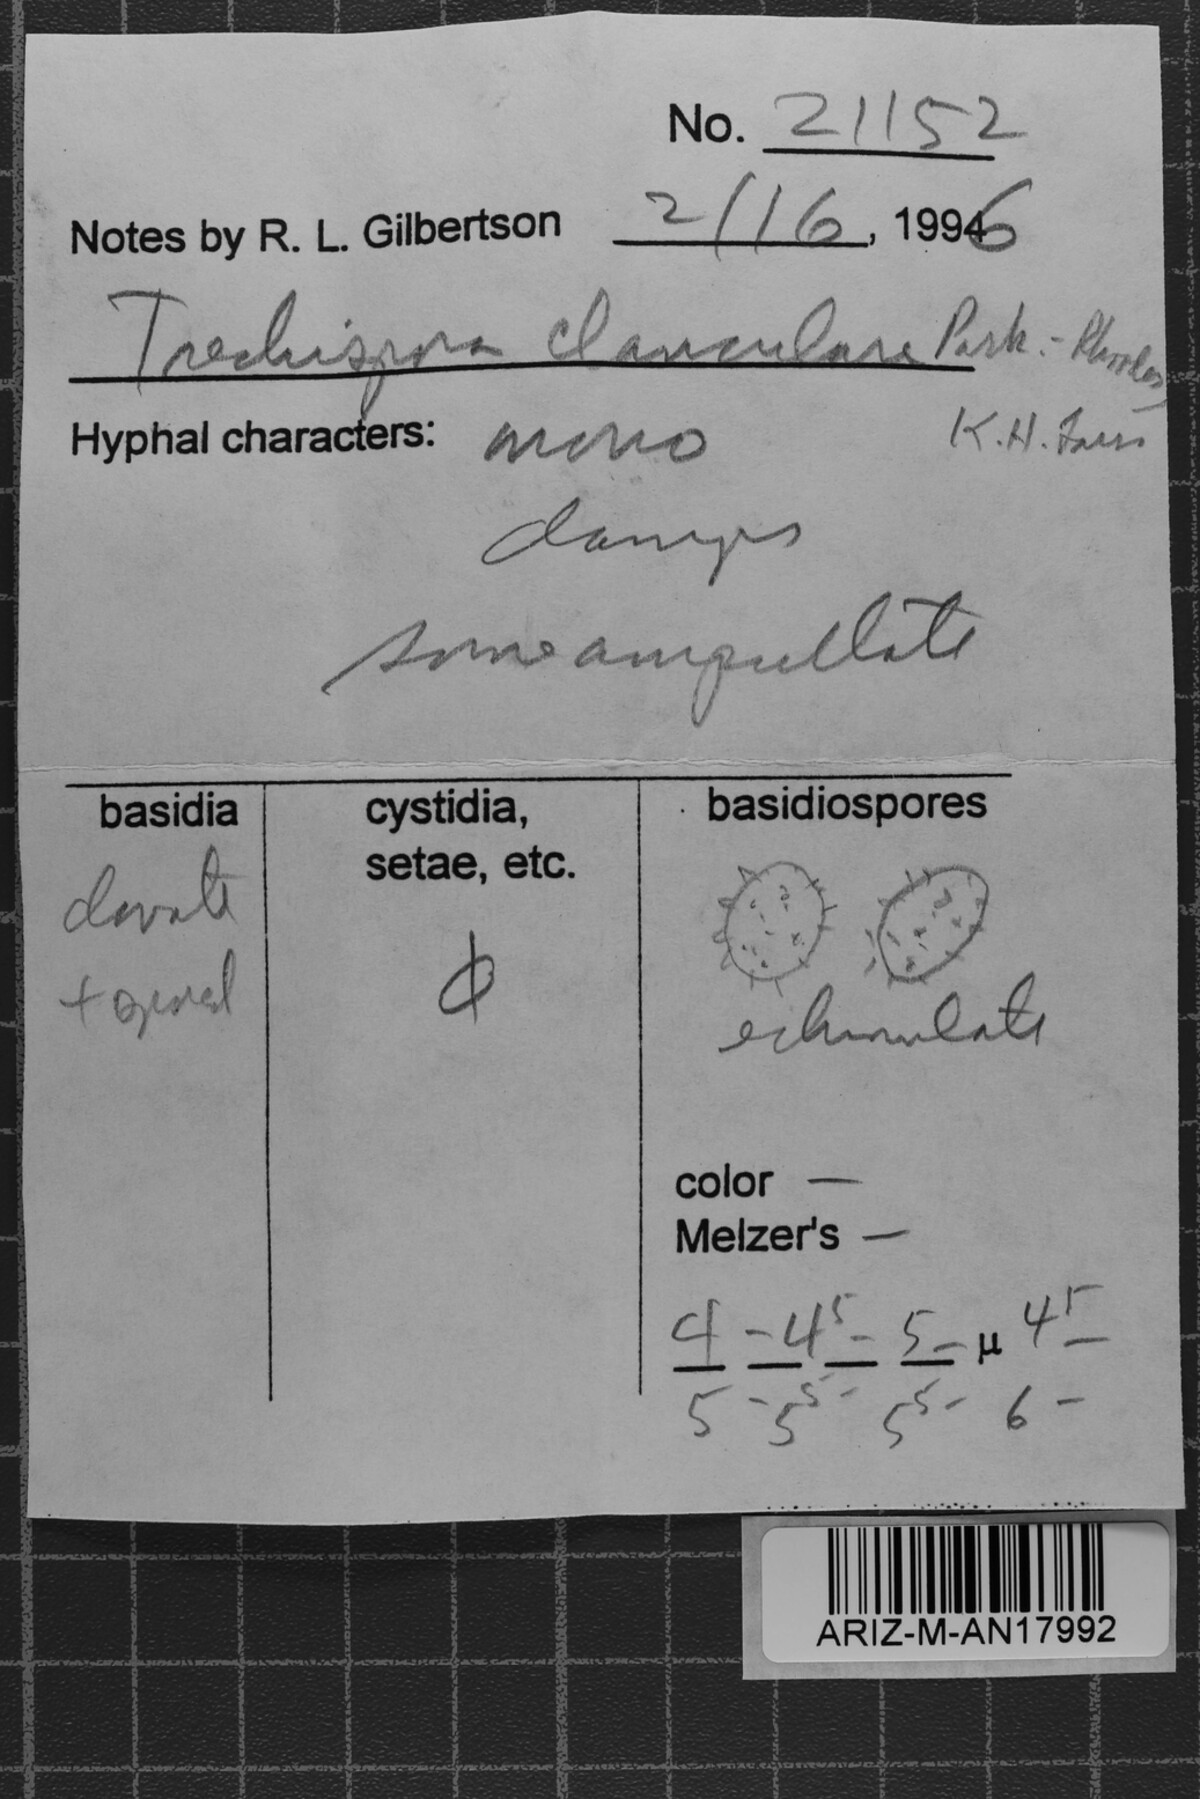 No. 21152
Notes by R. L. Gilbertson 2/16, 1996
Trechispora clanculare Park.-Rhodes
K.H. Larss
Hyphal characters: mono
clamps
some ampullate
basidia
clavate
4 spored
cystidia,
setae, etc.
ϕ
basidiospores
echinulate
color —
Melzer's —
4 - 4⁵ - 5 - µ 4⁵ -
5 - 5⁵ - 5⁵ - 6 -
ARIZ-M-AN17992